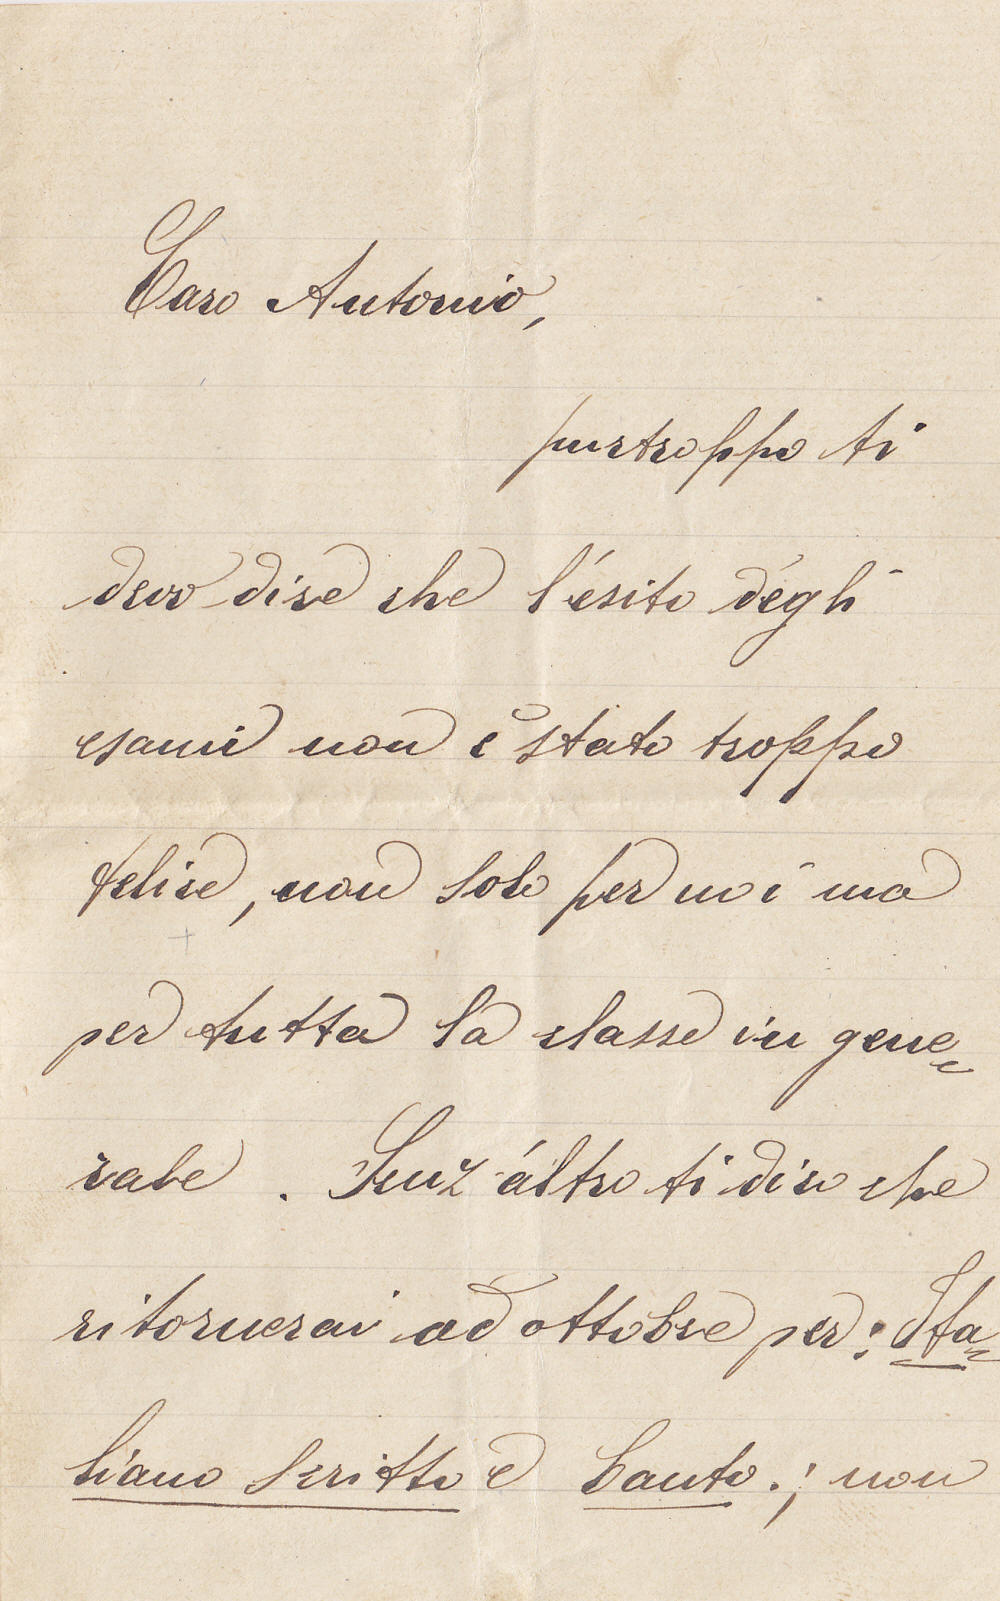 Caro Antonio,
purtroppo ti
devo dire che l'esito degli
esami non è stato troppo
felice, non solo per noi ma
per tutta la classe in gene-
rale. Senz'altro ti dico che
ritornerai ad ottobre per: Ita-
liano scritto e Canto.; non